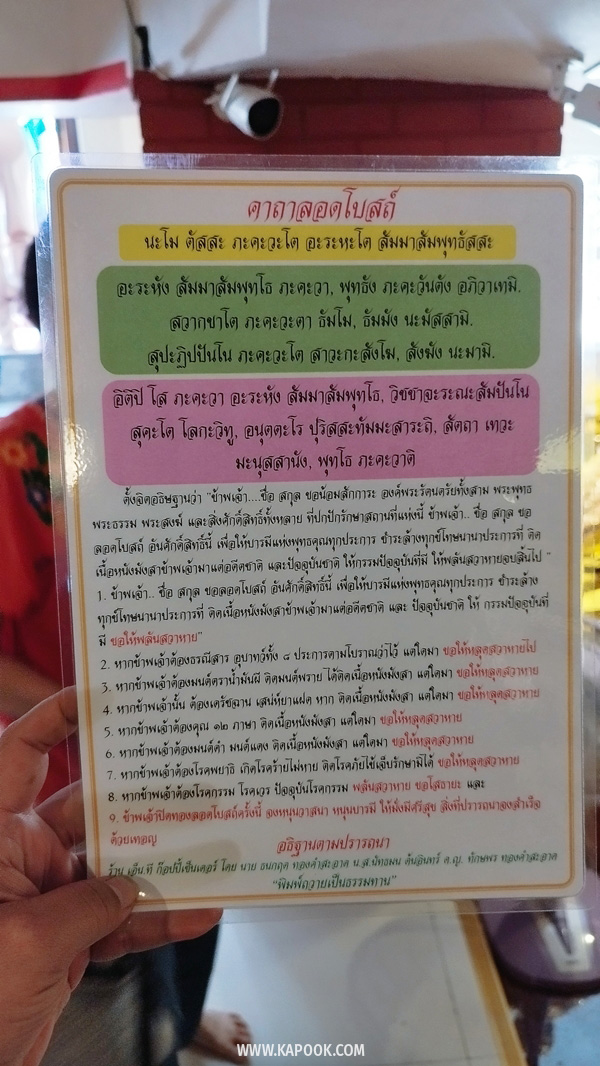 คาถาลอดโบสถ์
นะโม ตัสสะ ภะคะวะโต อะระหะโต สัมมาสัมพุทธัสสะ
อะระหัง สัมมาสัมพุทโธ ภะคะวา, พุทธัง ภะคะวันตัง อภิวาเทมิ.
สวากขาโต ภะคะวะตา ธัมโม, ธัมมัง นะมัสสามิ.
สุปะฏิปปันโน ภะคะวะโต สาวะกะสังโฆ, สังฆัง นะมามิ.
อิติปิ โส ภะคะวา อะระหัง สัมมาสัมพุทโธ, วิชชาจะระณะสัมปันโน
สุคะโต โลกะวิทู, อนุตตะโร ปุริสสะทัมมะสาระถิ, สัตถา เทวะ
มะนุสสานัง, พุทโธ ภะคะวาติ
ตั้งจิตอธิษฐานว่า "ข้าพเจ้า....ชื่อ สกุล ขอน้อมสักการะ องค์พระรัตนตรัยทั้งสาม พระพุทธ
พระธรรม พระสงฆ์ และสิ่งศักดิ์สิทธิ์ทั้งหลาย ที่ปกปักรักษาสถานที่แห่งนี้ ข้าพเจ้า.. ชื่อ สกุล ขอ
ลอดโบสถ์ อันศักดิ์สิทธิ์นี้ เพื่อให้บารมีแห่งพุทธคุณทุกประการ ชำระล้างทุกข์โทษนานาประการที่ ติด
เนื้อหนังมังสาข้าพเจ้ามาแต่อดีตชาติ และปัจจุบันชาติ ให้กรรมปัจจุบันที่มี ให้พลันสวาหายจบสิ้นไป "
1. ข้าพเจ้า.. ชื่อ สกุล ขอลอดโบสถ์ อันศักดิ์สิทธิ์นี้ เพื่อให้บารมีแห่งพุทธคุณทุกประการ ชำระล้าง
ทุกข์โทษนานาประการที่ ติดเนื้อหนังมังสาข้าพเจ้ามาแต่อดีตชาติ และ ปัจจุบันชาติ ให้ กรรมปัจจุบันที่
มี ขอให้พลันสวาหาย"
2. หากข้าพเจ้าต้องธรณีสาร อุบาทว์ทั้ง ๘ ประการตามโบราณว่าไว้ แต่ใดมา ขอให้หลุดสวาหายไป
3. หากข้าพเจ้าต้องมนต์ตราน้ำมันผี ติดมนต์พราย ได้ติดเนื้อหนังมังสา แต่ใดมา ขอให้หลุดสวาหาย
4. หากข้าพเจ้านั้น ต้องเดรัชฉาน เสน่ห์ยาแฝด หาก ติดเนื้อหนังมังสา แต่ใดมา ขอให้หลุดสวาหาย
5. หากข้าพเจ้าต้องคุณ ๑๒ ภาษา ติดเนื้อหนังมังสา แต่ใดมา ขอให้หลุดสวาหาย
6. หากข้าพเจ้าต้องมนต์ดำ มนต์แดง ติดเนื้อหนังมังสา แต่ใดมา ขอให้หลุดสวาหาย
7. หากข้าพเจ้าต้องโรคพยาธิ เกิดโรคร้ายไม่หาย ติดโรคภัยไข้เจ็บรักษามิได้ ขอให้หลุดสวาหาย
8. หากข้าพเจ้าต้องโรคกรรม โรคเวร ปัจจุบันโรคกรรม พลันสวาหาย ขอโสธายะ และ
9. ข้าพเจ้าปิดทองลอดโบสถ์ครั้งนี้ จงหนุนวาสนา หนุนบารมี ให้มั่งมีศรีสุข สิ่งที่ปรารถนาจงสำเร็จ
ด้วยเทอญ
อธิฐานตามปรารถนา
ร้าน เอ็น.ที ก๊อปปี้เซ็นเตอร์ โดย นาย ธนกฤต ทองคำสะอาด น.ส.นัทธมน ต้นอินทร์ ด.ญ. ทักษพร ทองคำสะอาด
"พิมพ์ถวายเป็นธรรมทาน"
WWW.KAPOOK.COM